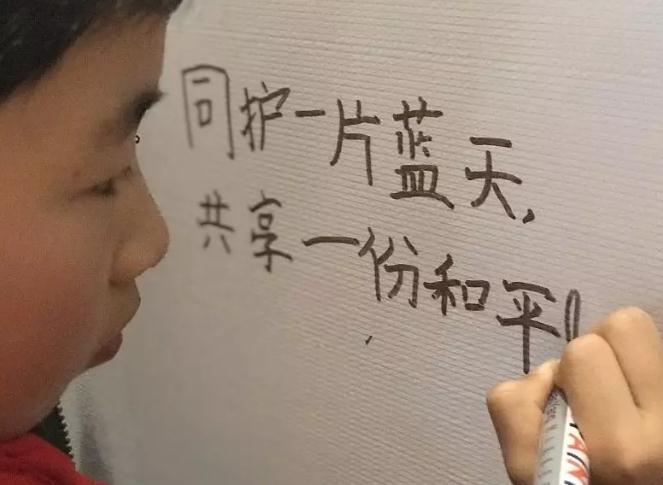 同护一片蓝天,
共享一份和平!